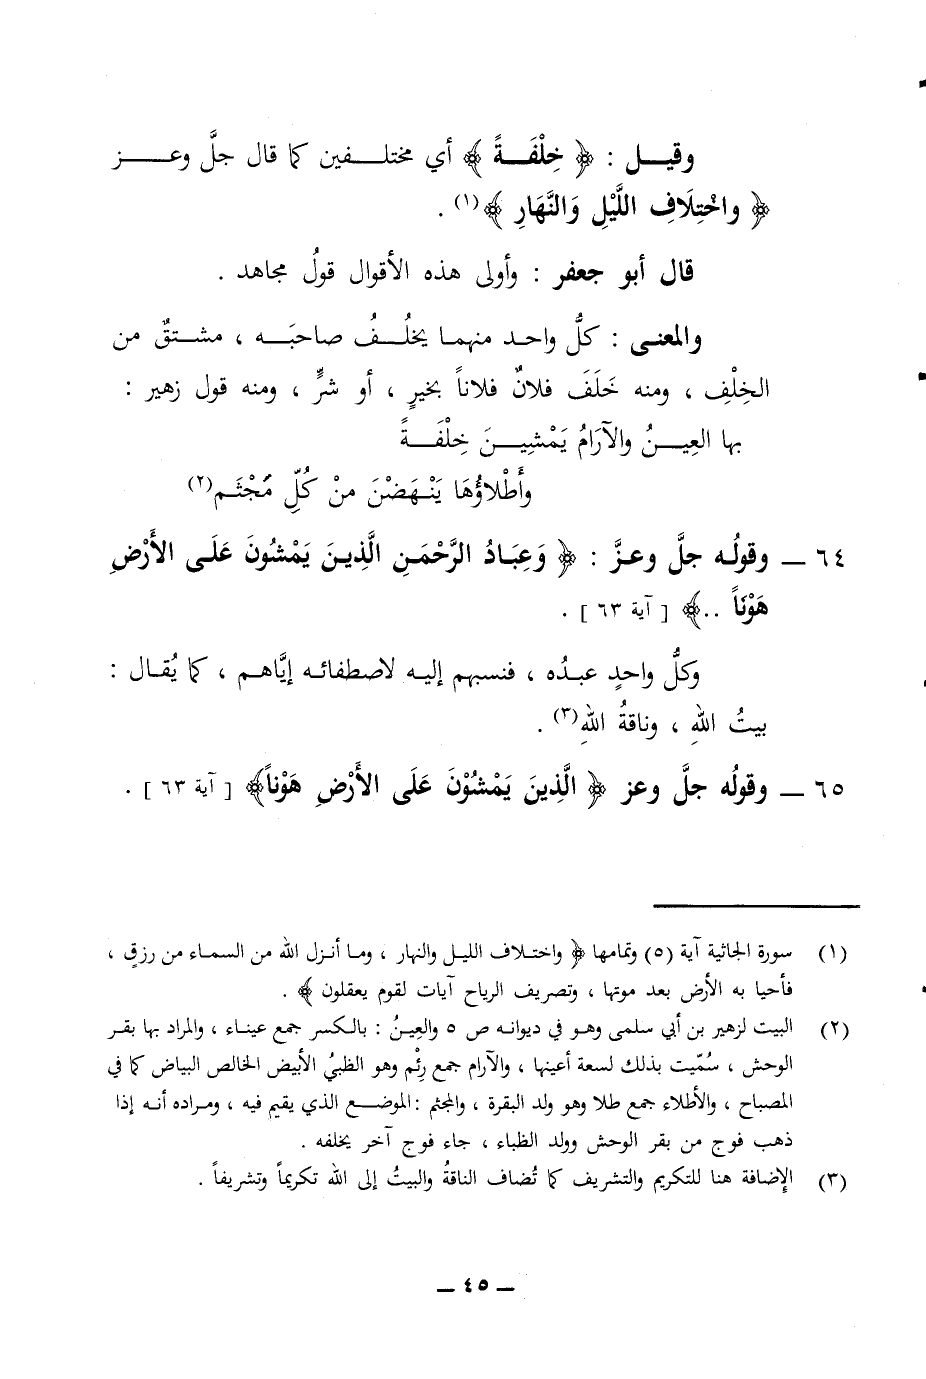 وقيل : ﴿ خِلْفَةً ﴾ أي مختلفين كما قال جلَّ وعز
﴿ واخْتِلَافِ اللَّيْلِ وَالنَّهَارِ ﴾(١) .
قال أبو جعفر : وأولى هذه الأقوال قولُ مجاهد .
والمعنى : كلُّ واحد منهما يخلُفُ صاحبَه ، مشتقٌ من
الخِلْفِ ، ومنه خَلَفَ فلانٌ فلاناً بخيرٍ ، أو شرٍّ ، ومنه قول زهير :
بها العِينُ والآرَامُ يَمْشِينَ خِلْفَةً
وأَطْلاؤُهَا يَنْهَضْنَ منْ كُلِّ مَجْثَمِ(٢)
٦٤ ـ وقولُه جلَّ وعزَّ : ﴿ وَعِبَادُ الرَّحْمَنِ الَّذِينَ يَمْشُونَ عَلَى الأَرْضِ
هَوْنَاً ..﴾ [ آية ٦٣ ] .
وكلُّ واحدٍ عبدُه ، فنسبهم إليه لاصطفائه إيَّاهم ، كما يُقال :
بيتُ اللهِ ، وناقةُ اللهِ(٣) .
٦٥ ـ وقولُه جلَّ وعز ﴿ الَّذِينَ يَمْشُوْنَ عَلَى الأَرْضِ هَوْناً﴾ [ آية ٦٣ ] .
(١) سورة الجاثية آية (٥) وتمامها ﴿ واختلاف الليل والنهار ، وما أنزل الله من السماء من رزقٍ ،
فأحيا به الأرض بعد موتها ، وتصريف الرياح آيات لقوم يعقلون ﴾ .
(٢) البيت لزهير بن أبي سلمى وهو في ديوانه ص ٥ والعِينُ : بالكسر جمع عيناء ، والمراد بها بقر
الوحش ، سُمّيت بذلك لسعة أعينها ، والآرام جمع رِئْم وهو الظبيُ الأبيض الخالص البياض كما في
المصباح ، والأطلاء جمع طلا وهو ولد البقرة ، والمجثم : الموضع الذي يقيم فيه ، ومراده أنه إذا
ذهب فوج من بقر الوحش وولد الظباء ، جاء فوج آخر يخلفه .
(٣) الإضافة هنا للتكريم والتشريف كما تُضاف الناقةُ والبيتُ إلى الله تكريماً وتشريفاً .
ـ ٤٥ ـ